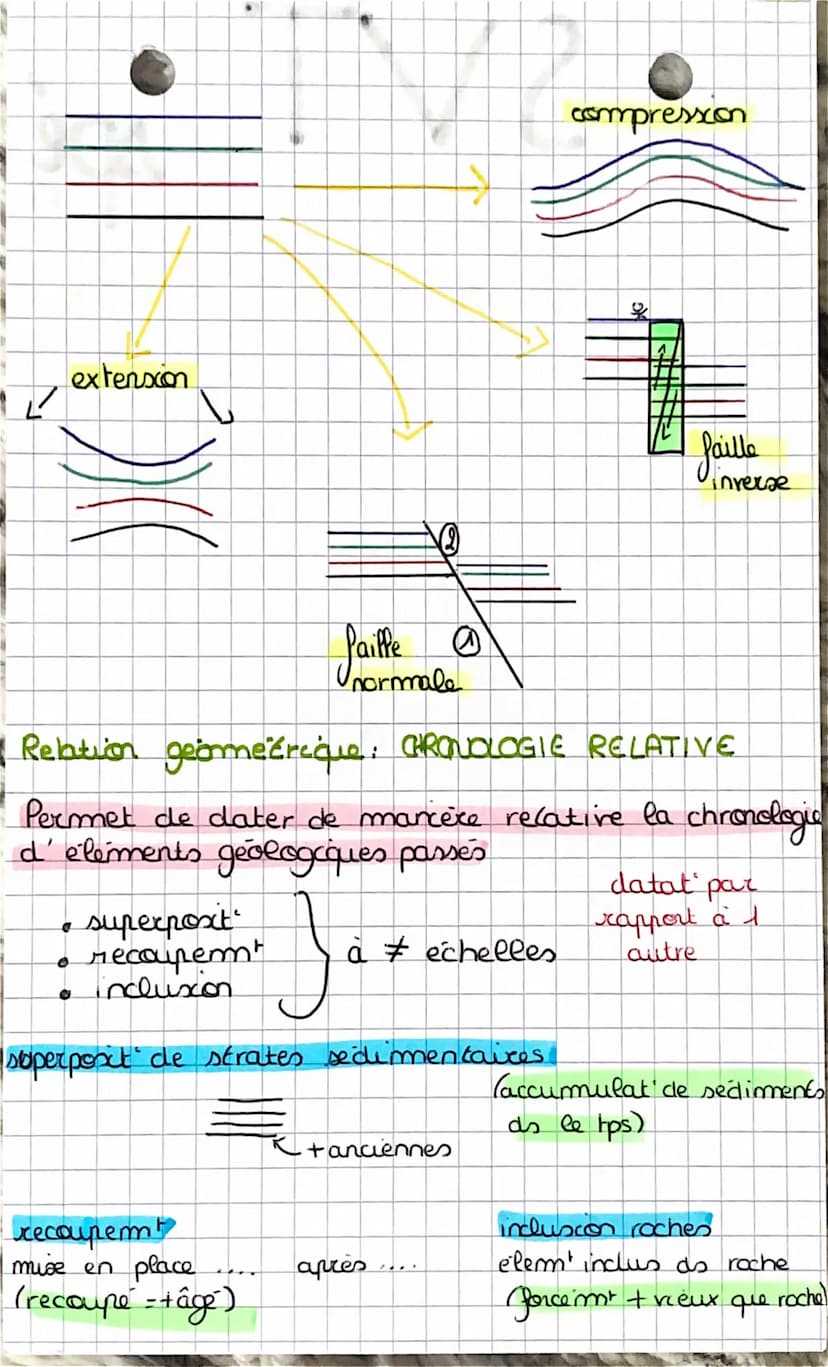 SVT
compression
extension
faille
inverse
2
faille
normale
1
Relation géométrique : CHRONOLOGIE RELATIVE
Permet de dater de manière relative la chronologie
d'éléments géologiques passés
datat° par
rapport à 1
autre
• superposit°
• recoupemt
• inclusion
à ≠ échelles
superposit° de strates sédimentaires
(accumulat° de sédiments
ds le tps)
+ anciennes
recoupemt
mise en place .... après ....
(recoupé = + âgé)
inclusion roches
élemt inclus ds roche
(forcémt + vieux que roche)